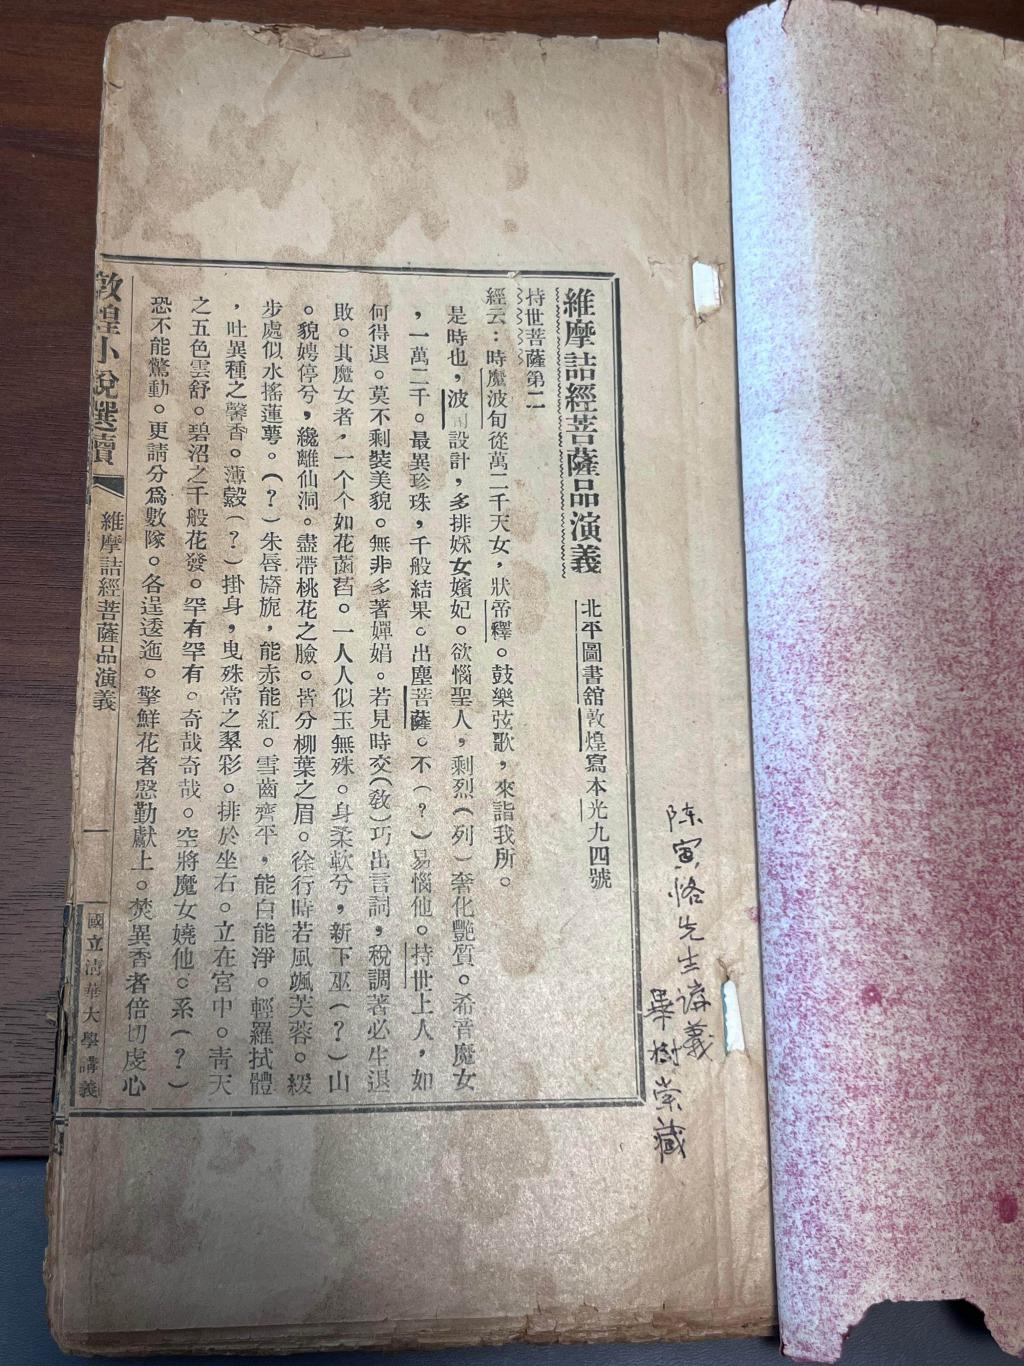 陈寅恪先生讲義
畢樹棠藏
維摩詰經菩薩品演義 北平圖書舘敦煌寫本光九四號
持世菩薩第二
經云：時魔波旬從萬二千天女，狀帝釋。鼓樂弦歌，來詣我所。
是時也，波旬設計，多排婇女嬪妃。欲惱聖人，剩烈（列）奢化艷質。希音魔女
，一萬二千。最異珍珠，千般結果。出塵菩薩。不（？）易惱他。持世上人，如
何得退。莫不剩裝美貌。無非多著嬋娟。若見時交（教）巧出言詞，稅調著必生退
敗。其魔女者，一个个如花菡萏。一人人似玉無殊。身柔軟兮，新下巫（？）山
。貌娉停兮，纔離仙洞。盡帶桃花之臉。皆分柳葉之眉。徐行時若風颯芙蓉。緩
步處似水搖蓮蕚。（？）朱唇旖旎，能赤能紅。雪齒齊平，能白能淨。輕羅拭體
，吐異種之馨香。薄縠（？）掛身，曳殊常之翠彩。排於坐右。立在宮中。青天
之五色雲舒。碧沼之千般花發。罕有罕有。奇哉奇哉。空將魔女嬈他。系（？）
恐不能驚動。更請分爲數隊。各逞逶迤。擎鮮花者慇勤獻上。焚異香者倍切虔心
敦煌小說選讀 維摩詰經菩薩品演義 一 國立清華大學講義